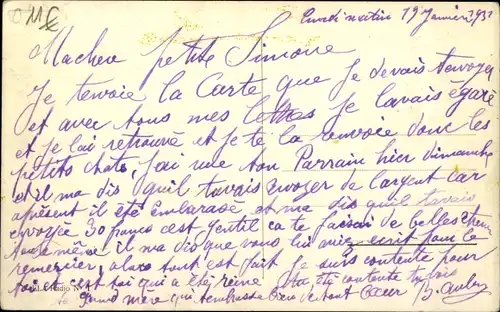 11 €
Lundi matin 19 Janvier 1931
Ma chere petite Simone
Je tenvoie la Carte que Je devais tenvoyer
et avec tous mes lettres Je lavais egaré
et je lai retrouvé et je te la renvoie donc les
petits chats, Jai vule ton Parrain hier dimanche
et il ma dis quil tavais envoyer de largent car
apresent il été Embarasé et ma dis quil tavait
envoyée 30 francs cest gentil ca te faisai de belles
meme il ma dis que vous lui aviez ecrit pour le
remercier, alors tout est fait Je suis contente pour
toi et cest toi qui a été reine tu été contente
ta Grand mere qui tembrasse bien de tout Coeur